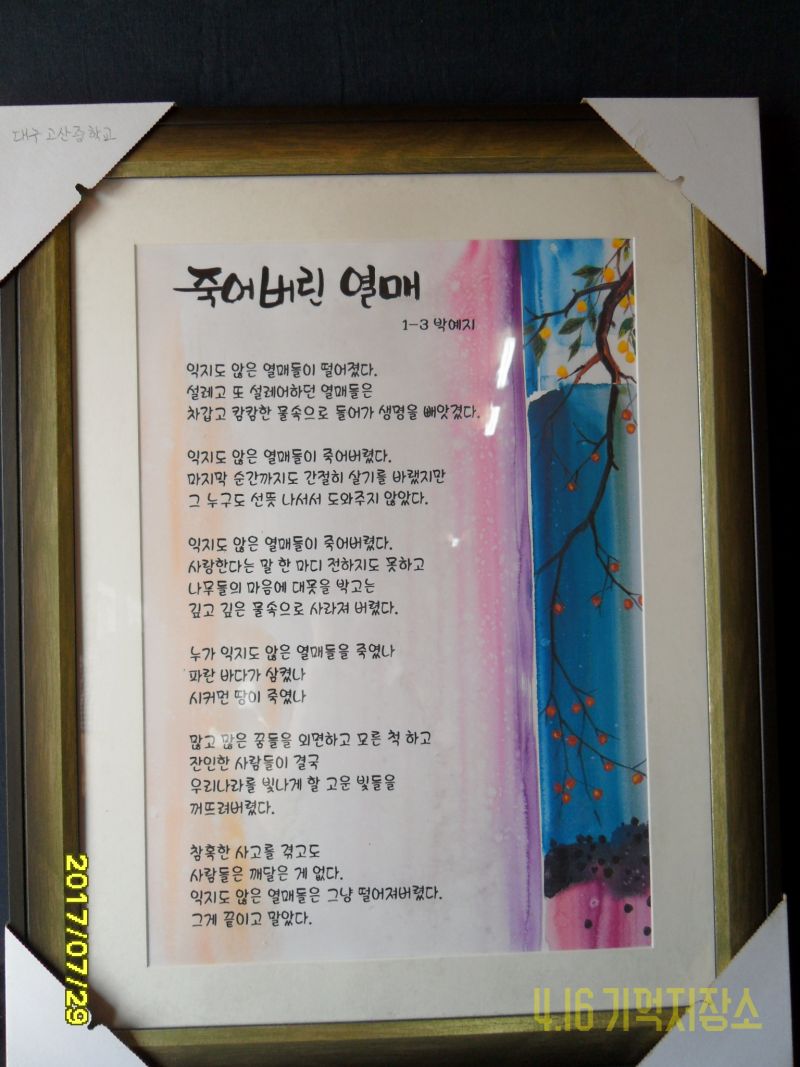 대구 고산중학교
죽어버린 열매
1-3 박예지
익지도 않은 열매들이 떨어졌다.
설레고 또 설레어하던 열매들은
차갑고 캄캄한 물속으로 들어가 생명을 빼앗겼다.
익지도 않은 열매들이 죽어버렸다.
마지막 순간까지도 간절히 살기를 바랬지만
그 누구도 선뜻 나서서 도와주지 않았다.
익지도 않은 열매들이 죽어버렸다.
사랑한다는 말 한 마디 전하지도 못하고
나무들의 마음에 대못을 박고는
깊고 깊은 물속으로 사라져 버렸다.
누가 익지도 않은 열매들을 죽였나
파란 바다가 삼켰나
시커먼 땅이 죽였나
많고 많은 꿈들을 외면하고 모른 척 하고
잔인한 사람들이 결국
우리나라를 빛나게 할 고운 빛들을
꺼뜨려버렸다.
참혹한 사고를 겪고도
사람들은 깨달은 게 없다.
익지도 않은 열매들은 그냥 떨어져버렸다.
그게 끝이고 말았다.
2017/07/29
4.16 기억저장소